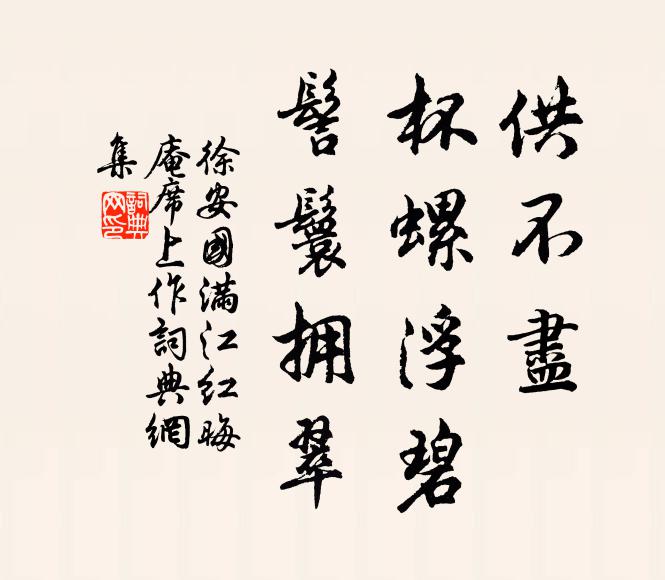 供不盡
杯螺浮碧
髻鬟拥翠
徐安國满江红晦
庵席上作詞典網
集
詞典
网印